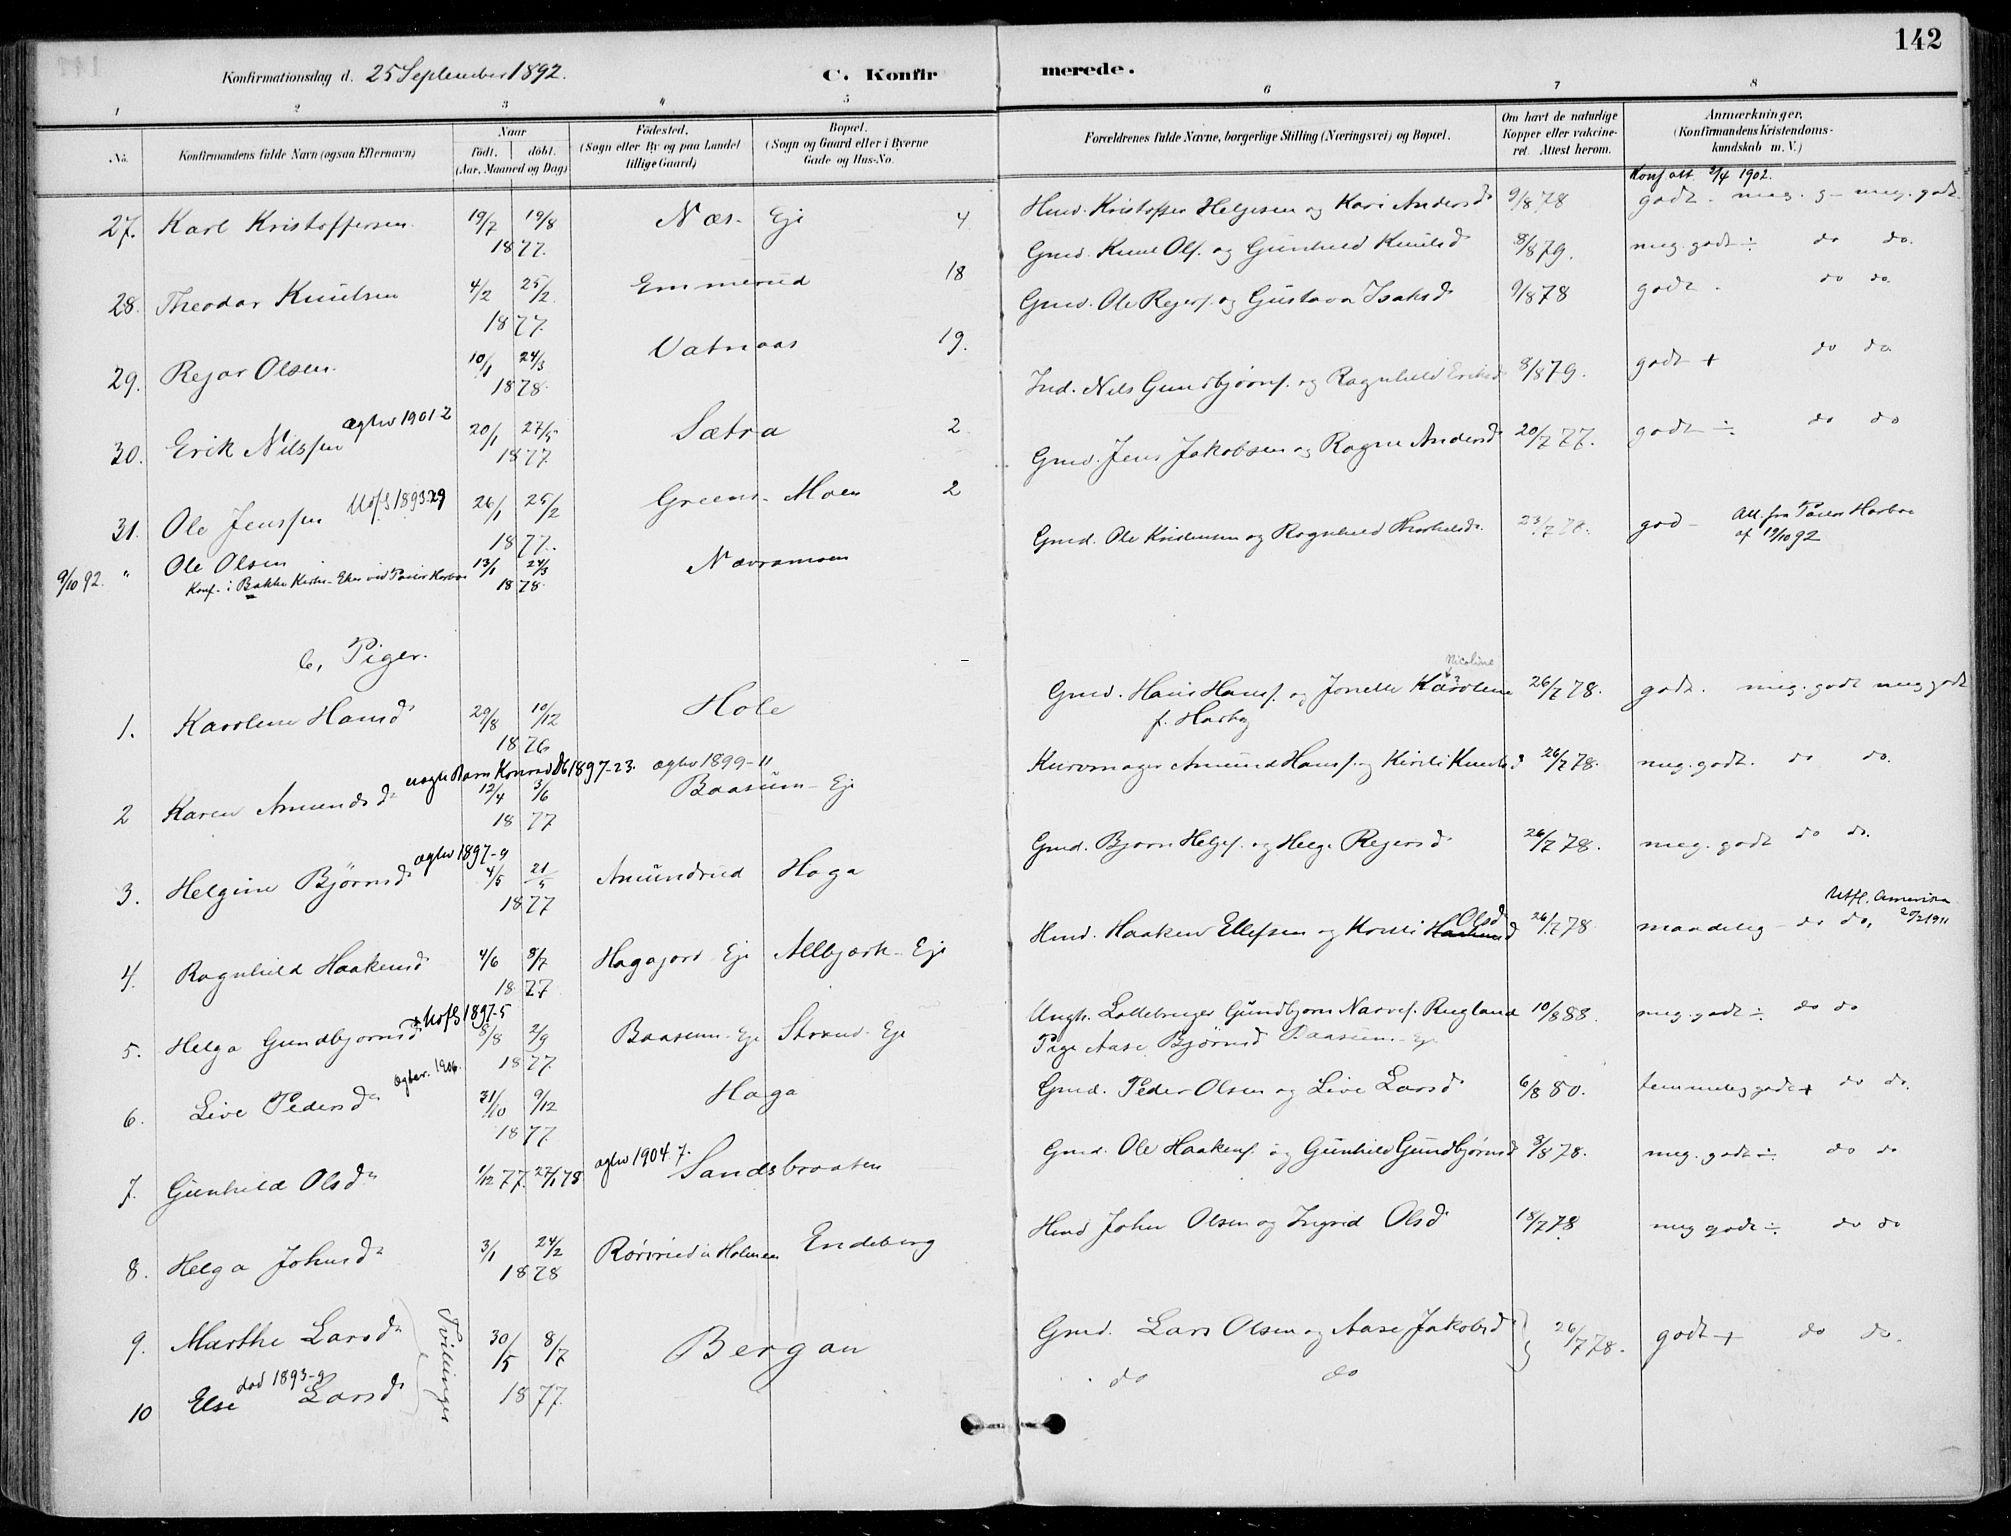 142
Konfirmationsdag d. 25 September 1892.
C. Konfirmerede.
1 2 3 4 5 6 7 8
No.
Konfirmandens fulde Navn (ogsaa Efternavn)
Naar
født. døbt.
(Aar, Maaned og Dag)
Fødested.
(Sogn eller By og paa Landet
tillige Gaard)
Bopæl.
(Sogn og Gaard eller i Byerne
Gade og Hus-No.
Forældrenes fulde Navne, borgerlige Stilling (Næringsvei) og Bopæl.
Om havt de naturlige
Kopper eller vakcine-
ret. Attest herom.
Anmærkninger,
(Konfirmandens Kristendoms-
kundskab m. V.)
Konf att 2/4 1902.
27. Karl Kristoffersen 19/7 19/8 1877. Næs - Eje 4 Hmd. Kristoffer Helgesen og Kari Andersd 9/8 78 godt. meg. g - meg. godt
28. Theodor Knutsen 4/2 25/2 1877. Emmerud 18 Gmd. Knut Ols. og Gunhild Knutsd 8/8 79. meg. godt ÷ do do.
29. Rejar Olsen 10/1 24/3 1878. Vatnaas 19. Gmd. Ole Rejers. og Gustava Isaksd 9/8 78 godt. do do
30. Erik Nilssen ægtev 1901 2 20/1 27/5 1877. Sætra 2 Ind. Nils Gundbjørns. og Ragnhild Eriksd 8/8 79. godt + do do
31. Ole Jenssen Udfl 1893.29 26/1 25/2 1877. Greens - Moen 2 Gmd. Jens Jakobsen og Ragne Andersd 20/7 77. godt ÷ do do
9/10 92. " Ole Olsen 13/1 24/3 1878. Nævramoen Gmd. Ole Kristensen og Ragnhild Thorkelsd. 23/7 78. god - Att. fra Pastor Harboe
af 19/10 92
Konf. i Bakke Kirke - Eker ved Pastor Harboe
b, Piger.
1. Karolene Hansd 29/8 10/12 1876 Hole Gmd. Hans Hans. og Jonette Karolene 26/7 78. godt. meg. godt meg godt
Nicoline
f. Harby
2 Karen Amundsd 12/4 3/6 1877 ægtev 1899-11 Baasum - Eje Kurvmager Amund Hans. og Kirsti Knutsd 26/7 78. meg. godt. do do.
uægte Barn Konrad Db 1897-23.
3. Helgine Bjørnsd ægtev 1897-9 4/5 21/5 1877 Amundrud Haga Gmd. Bjørn Helges. og Helge Rejersd 26/7 78. meg. godt do do.
4. Ragnhild Haakensd 4/6 8/7 1877. Hagajord - Eje Allbjørk - Eje Hmd. Haaken Ellefsen og Kirsti Olsd 26/7 78 maadelig - do do.
Utfl. Amerika
20/2 1911
5. Helga Gundbjørnsd Udfl 1897-5 8/8 2/9 1877. Baasum - Eje Strand - Eje Ungk. Lottebruger Gundbjørn Narves. Rugland 10/8 88. meg. godt ÷ do do
Pige Aase Bjørnsd Baasum - Eje
6. Live Pedersd ægtev. 1906. 31/10 9/12 1877. Haga Gmd. Peder Olsen og Live Larsd 6/8 80. temmelig godt + do do.
7. Gunhild Olsd 1/12 77. 27/1 78 ægtev 1904. 7. Sandsbraaten Gmd. Ole Haakens. og Gunhild Gundbjørnsd 8/8 78. meg. godt ÷ do do
8. Helga Johnsd 3/1 24/2 1878 Rørvud u Holmen Endeberg Hmd John Olsen og Ingrid Olsd 18/7 78. meg godt ÷ do do
9. Marthe Larsd 30/5 8/7 1877. Bergan Gmd. Lars Olsen og Aase Jakobsd 26/7 78. godt + do do.
Tvillinger
død 1893-9
10 Else Larsd do do